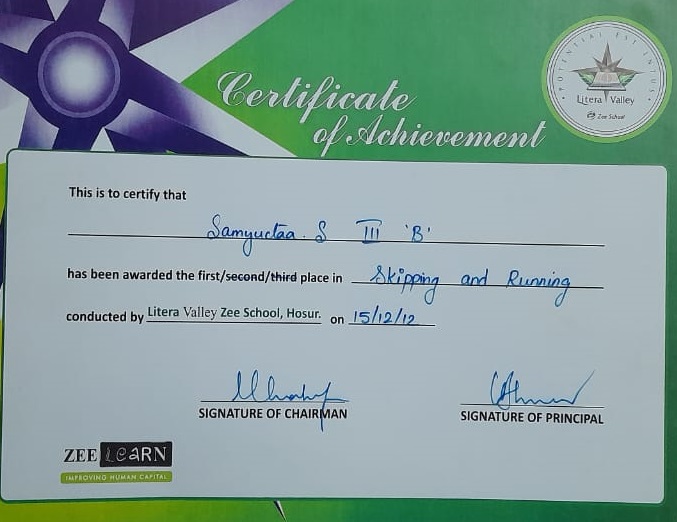 Certificate
of Achievement
POTENTIAL EST INTUS
Litera Valley
Zee School
This is to certify that
Samyuctaa. S III 'B'
has been awarded the first/second/third place in Skipping and Running
conducted by Litera Valley Zee School, Hosur. on 15/12/12
SIGNATURE OF CHAIRMAN
SIGNATURE OF PRINCIPAL
ZEE LeaRN
IMPROVING HUMAN CAPITAL